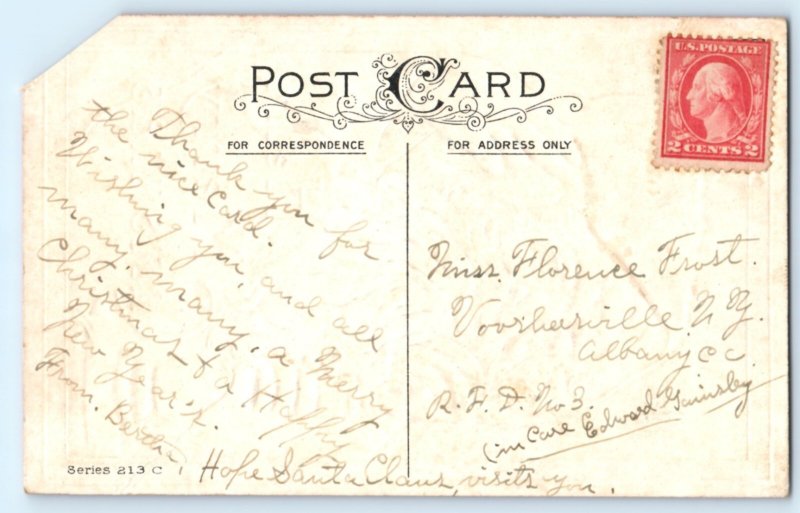 POST CARD
FOR CORRESPONDENCE
FOR ADDRESS ONLY
U.S. POSTAGE
2 CENTS 2
Thank you for
the nice Card.
Wishing you, and all
many, many, a Merry
Christmas & a Happy
New Year's.
From. Bertha,
Hope Santa Claus, visits you.
Miss. Florence Frost.
Voorheesville N. Y.
Albany CC
R. F. D. No 3.
(in Care Edward
Series 213 C